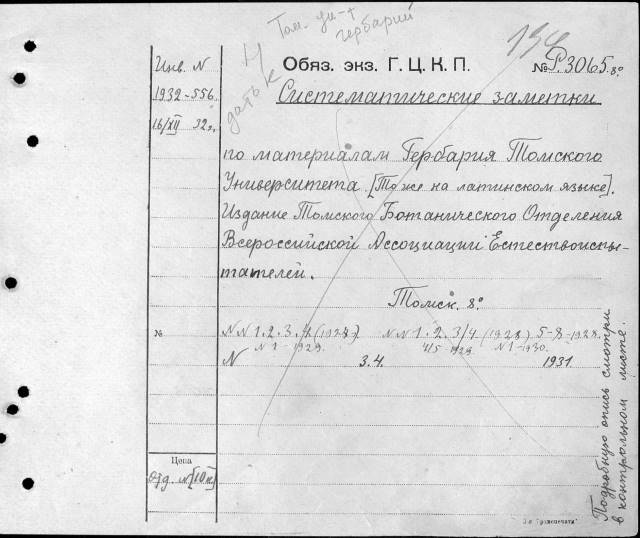 Том. ун-т
гербарий
Инв. N
1932-556
16/XII 32г.
Обяз. экз. Г. Ц. К. П.
№ Р.3065.8°
Систематические заметки
по материалам Гербария Томского
Университета. [То же на латинском языке].
Издание Томского Ботанического Отделения
Всероссийской Ассоциации Естествоиспы-
тателей.
Томск. 8°.
№
NN 1. 2. 3. 4 (1927). NN 1. 2. 3/4 (1928) 5-8-1928.
N 1 - 1929. 4/5 - 1929 N 1 - 1930.
N 3.4. 1931.
Цена
Подробную опись смотри
в контрольном листе.